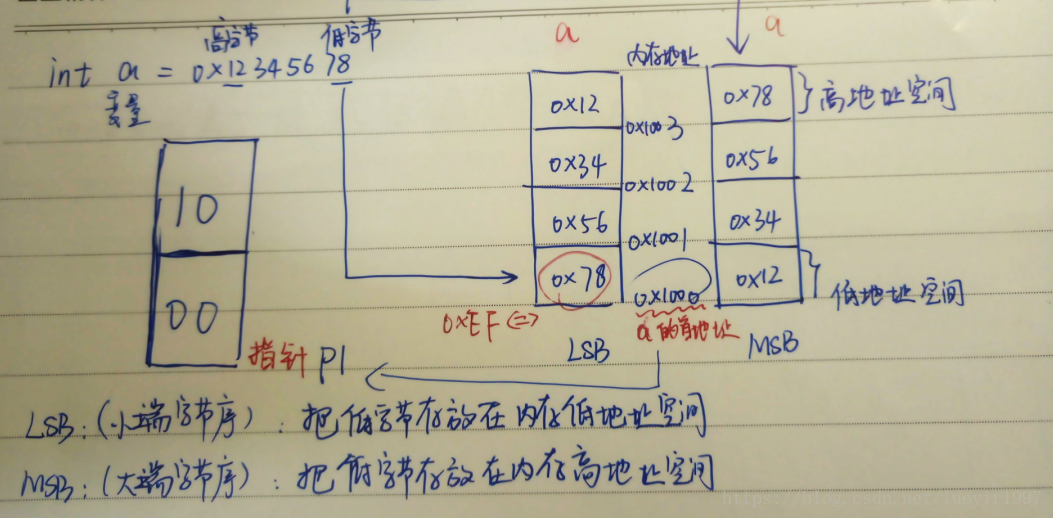 高字节 低字节
int a = 0x12345678
变量
a
内存地址
a
0x12
0x34
0x56
0x78
0x1003
0x1002
0x1001
0x1000
0x78
0x56
0x34
0x12
}高地址空间
}低地址空间
10
00
指针 P1
0xEF <=>
a的首地址
LSB
MSB
LSB: (小端字节序): 把低字节存放在内存低地址空间
MSB: (大端字节序): 把低字节存放在内存高地址空间